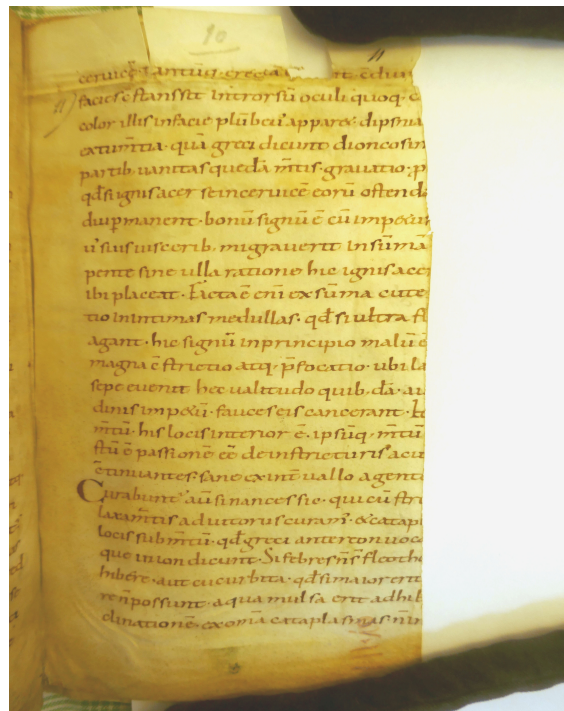 10
11
faciesestanssit introrsū oculi quoq· c
color illis infacie plūbeus appare&· dipsnia
extumtia· quā greci dicunt dioncosin
partib· uanitas quedā m̄tis· grauatio· p
qd̄ si ignis acer se incernicē eorū ostend
diu pmanent· bonū signū ē cū impetu
ui suis uiscerib· migrauerit in sūma
pente sine ulla ratione hic ignis ace
ibi placeat· Facta ē eni ex sūma cute
tio in intimas medullas· qd̄ si ultra fl
agant· hic signū in principio malū ē
magna ē strictio atq· p̄focatio· ubi la
sepe euenit hec ualitudo quib· dā· au
dinis impetū· fauces eis cancerant·
m̄tū· his locis interior ē· ipsūq· m̄tū
stū ē passionē eē de instricturis acu
ētinuantes· sane ex int̄uallo agente
Curabunt aū sinances sic· qui cū stri
laxam̄tis adiutorus curant· & catap
locis subm̄tū· qd̄ greci antereon uoc
que inion dicunt· Si febres n̄s fleotho
hibere· aut cucurbita· qd̄ si maior erit
re n̄ possunt· aqua mulsa erit adhib
clinatione· ex oma cataplasmas nim